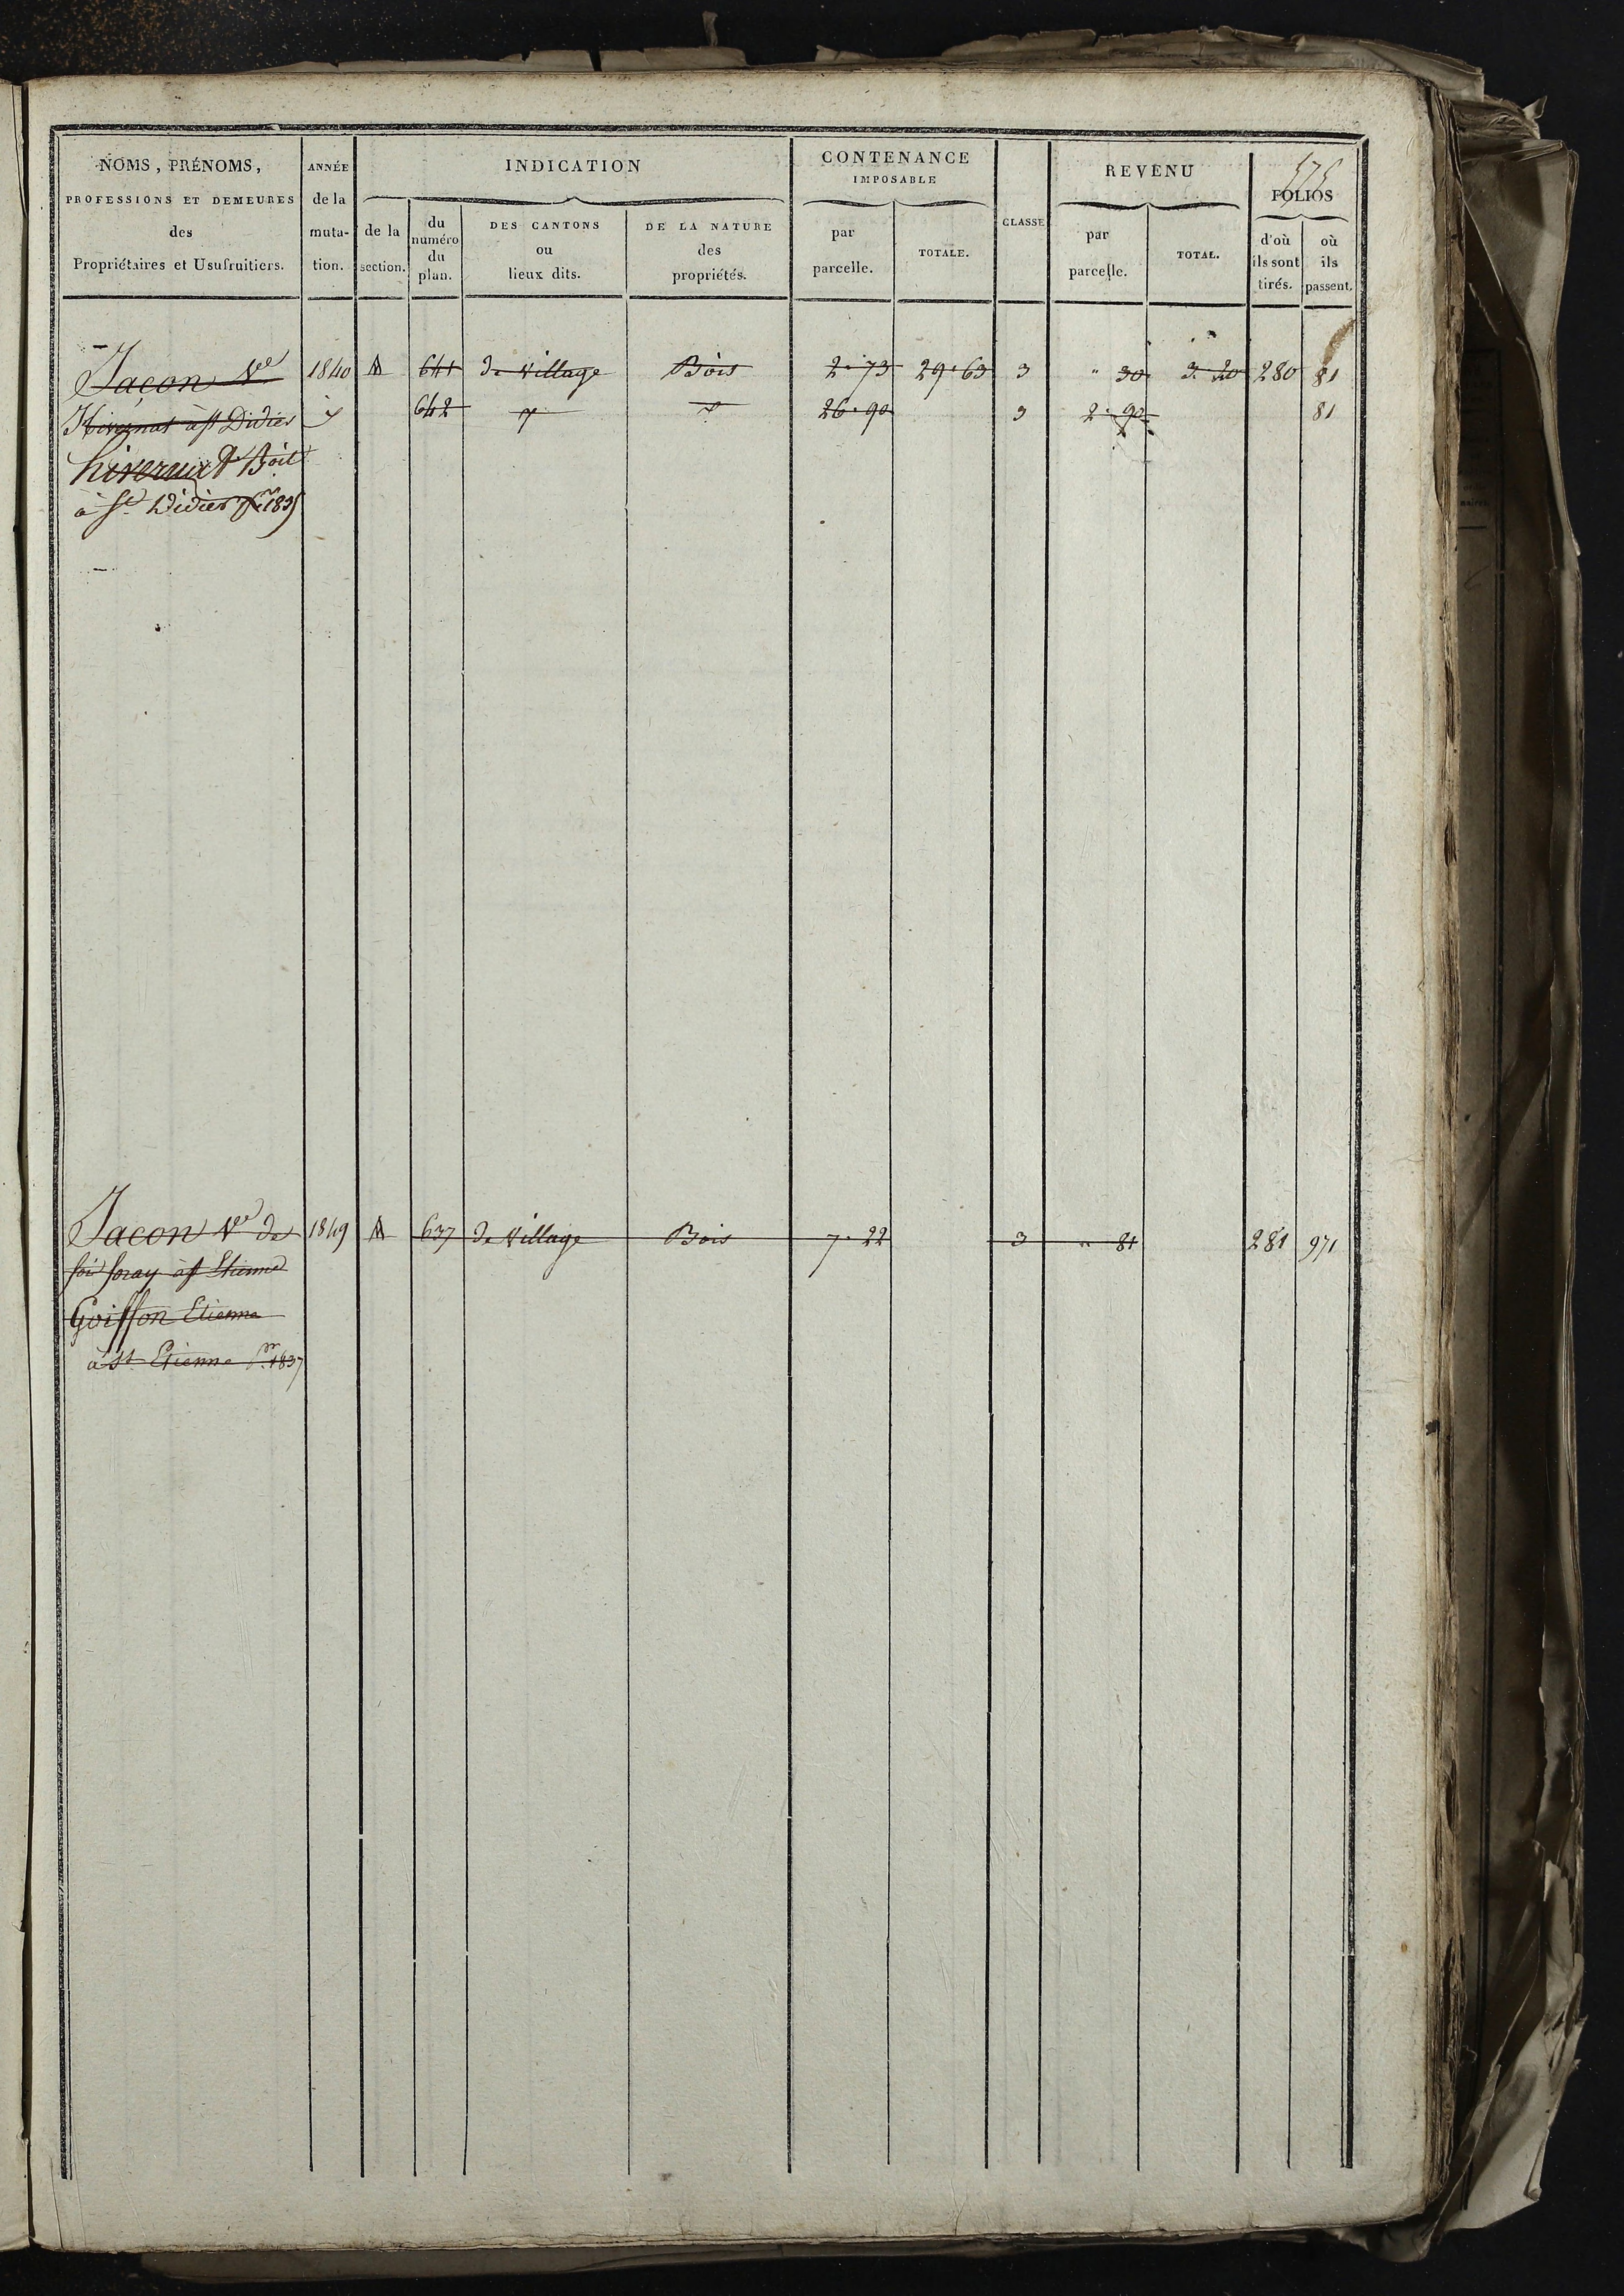 575
NOMS, PRÉNOMS,
PROFESSIONS ET DEMEURES
des
Propriétaires et Usufruitiers.
ANNÉE
de la
muta-
tion.
INDICATION
de la
section.
du
numéro
du
plan.
DES CANTONS
ou
lieux dits.
DE LA NATURE
des
propriétés.
CONTENANCE
IMPOSABLE
par
parcelle.
TOTALE.
CLASSE
REVENU
par
parcelle.
TOTAL.
FOLIOS
d'où
ils sont
tirés.
où
ils
passent.
Jaçon Ve 1840 A 641 de village Bois 2. 73 29. 63 3 " 30 3. 20 280 81
Hivernat à St Didier 642 26. 90 3 2. 90 81
à St Didier 1835
Jacon Ve de 1849 A 637 de village Bois 7. 22 3 " 81 281 971
foray à St Etienne
Goisson Etienne
à St Etienne pr 1837